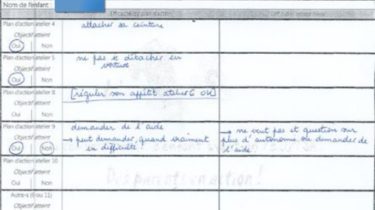 Nom de l'enfant
Plan d'action atelier 4
attacher sa ceinture
Objectif atteint
Oui Non
Plan d'action atelier 5
ne pas se détacher en
voiture
Objectif atteint
Oui Non
Plan d'action atelier 8
[réguler son appétit atelier 6 ou]
Objectif atteint
Oui Non
Plan d'action atelier 9
demander de l'aide
Objectif atteint
→ peut demander quand vraiment
→ ne veut pas et question sur
Oui Non
en difficulté
plus d'autonomie ou demander de
l'aide
Plan d'action atelier 10
Objectif atteint
Oui Non
Autre-s (6 ou 11)
Objectif atteint
Oui Non